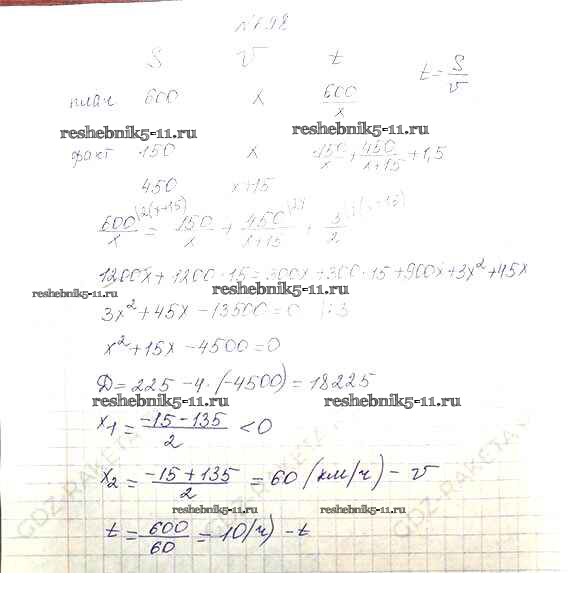 №698
S V t
t = S/v
план 600 x 600/x
reshebnik5-11.ru reshebnik5-11.ru
факт 150 x 150/x + 450/(x+15) + 1,5
450 x+15
600/x |2(x+15) = 150/x + 450/(x+15) |2x + 3/2 |x(x+15)
1200x + 1200·15 = 300x + 300·15 + 900x + 3x² + 45x
reshebnik5-11.ru reshebnik5-11.ru
3x² + 45x - 13500 = 0 |:3
x² + 15x - 4500 = 0
Д = 225 - 4·(-4500) = 18225
reshebnik5-11.ru reshebnik5-11.ru
x1 = (-15-135)/2 < 0
x2 = (-15+135)/2 = 60 (км/ч) - v
reshebnik5-11.ru reshebnik5-11.ru
t = 600/60 = 10(ч) - t
GDZ-RAKETA
GDZ-RAKETA
GDZ-RAKETA